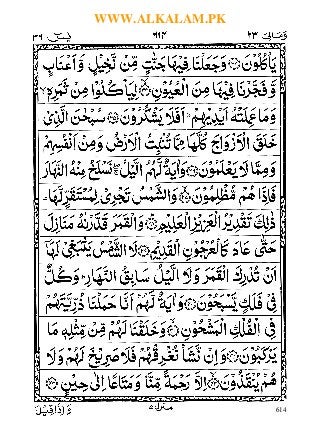 WWW.ALKALAM.PK
يٰسٓ ٣٦ ٦١٤ وَمَالِىَ ٢٣
يَاْكُلُوْنَ ۝ وَجَعَلْنَا فِيْهَا جَنّٰتٍ مِّنْ نَّخِيْلٍ وَّ اَعْنَابٍ
وَّ فَجَّرْنَا فِيْهَا مِنَ الْعُيُوْنِ ۝ لِيَاْكُلُوْا مِنْ ثَمَرِهٖ
وَمَا عَمِلَتْهُ اَيْدِيْهِمْ ؕ اَفَلَا يَشْكُرُوْنَ ۝ سُبْحٰنَ الَّذِىْ
خَلَقَ الْاَزْوَاجَ كُلَّهَا مِمَّا تُنْۢبِتُ الْاَرْضُ وَمِنْ اَنْفُسِهِمْ
وَمِمَّا لَا يَعْلَمُوْنَ ۝ وَاٰيَةٌ لَّهُمُ الَّيْلُ ۚ نَسْلَخُ مِنْهُ النَّهَارَ
فَاِذَا هُمْ مُّظْلِمُوْنَ ۝ وَالشَّمْسُ تَجْرِىْ لِمُسْتَقَرٍّ لَّهَا ؕ
ذٰلِكَ تَقْدِيْرُ الْعَزِيْزِ الْعَلِيْمِ ۝ وَالْقَمَرَ قَدَّرْنٰهُ مَنَازِلَ
حَتّٰى عَادَ كَالْعُرْجُوْنِ الْقَدِيْمِ ۝ لَا الشَّمْسُ يَنْۢبَغِىْ لَهَاۤ
اَنْ تُدْرِكَ الْقَمَرَ وَلَا الَّيْلُ سَابِقُ النَّهَارِ ؕ وَكُلٌّ
فِىْ فَلَكٍ يَّسْبَحُوْنَ ۝ وَاٰيَةٌ لَّهُمْ اَنَّا حَمَلْنَا ذُرِّيَّتَهُمْ
فِى الْفُلْكِ الْمَشْحُوْنِ ۝ وَخَلَقْنَا لَهُمْ مِّنْ مِّثْلِهٖ مَا
يَرْكَبُوْنَ ۝ وَاِنْ نَّشَاْ نُغْرِقْهُمْ فَلَا صَرِيْخَ لَهُمْ وَلَا
هُمْ يُنْقَذُوْنَ ۝ اِلَّا رَحْمَةً مِّنَّا وَمَتَاعًا اِلٰى حِيْنٍ ۝
وَاِذَا قِيْلَ منزل ٥ 614